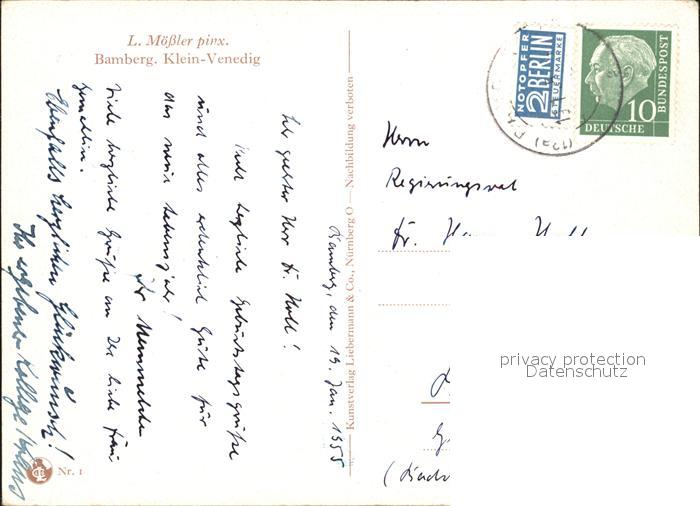 L. Mößler pinx.
Bamberg. Klein-Venedig
Bamberg, den 19. Jan. 1955
Sehr geehrter Herr Dr.
Recht herzliche Geburtstagsgrüße
und alles erdenklich Gute für
das neue Lebensjahr!
Ihr
Viele herzliche Grüße an Ihre liebe Frau
Gemahlin.
Ebenfalls herzlichen Glückwunsch!
Ihr ergebener Kollege
Nr. 1
Kunstverlag Liebermann & Co., Nürnberg O — Nachbildung verboten
NOTOPFER
2 BERLIN
STEUERMARKE
10
DEUTSCHE
BUNDESPOST
(13a)
Herrn
Regierungsrat
Dr.
privacy protection
Datenschutz